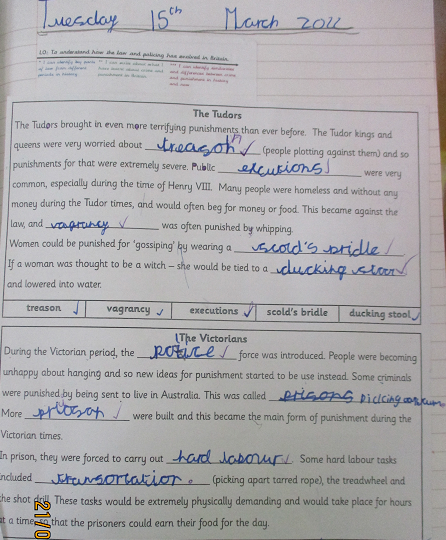 Tuesday 15th March 2022
LO: To understand how the law and policing has evolved in Britain.
The Tudors
The Tudors brought in even more terrifying punishments than ever before. The Tudor kings and
queens were very worried about treason (people plotting against them) and so
punishments for that were extremely severe. Public excutions were very
common, especially during the time of Henry VIII. Many people were homeless and without any
money during the Tudor times, and would often beg for money or food. This became against the
law, and vagrancy was often punished by whipping.
Women could be punished for 'gossiping' by wearing a scold's bridle
If a woman was thought to be a witch – she would be tied to a ducking stool
and lowered into water.
treason vagrancy executions scold's bridle ducking stool
The Victorians
During the Victorian period, the police force was introduced. People were becoming
unhappy about hanging and so new ideas for punishment started to be use instead. Some criminals
were punished by being sent to live in Australia. This was called prisons
More prison were built and this became the main form of punishment during the
Victorian times.
In prison, they were forced to carry out hard labour. Some hard labour tasks
included transortation. (picking apart tarred rope), the treadwheel and
the shot drill. These tasks would be extremely physically demanding and would take place for hours
at a time so that the prisoners could earn their food for the day.
21/0